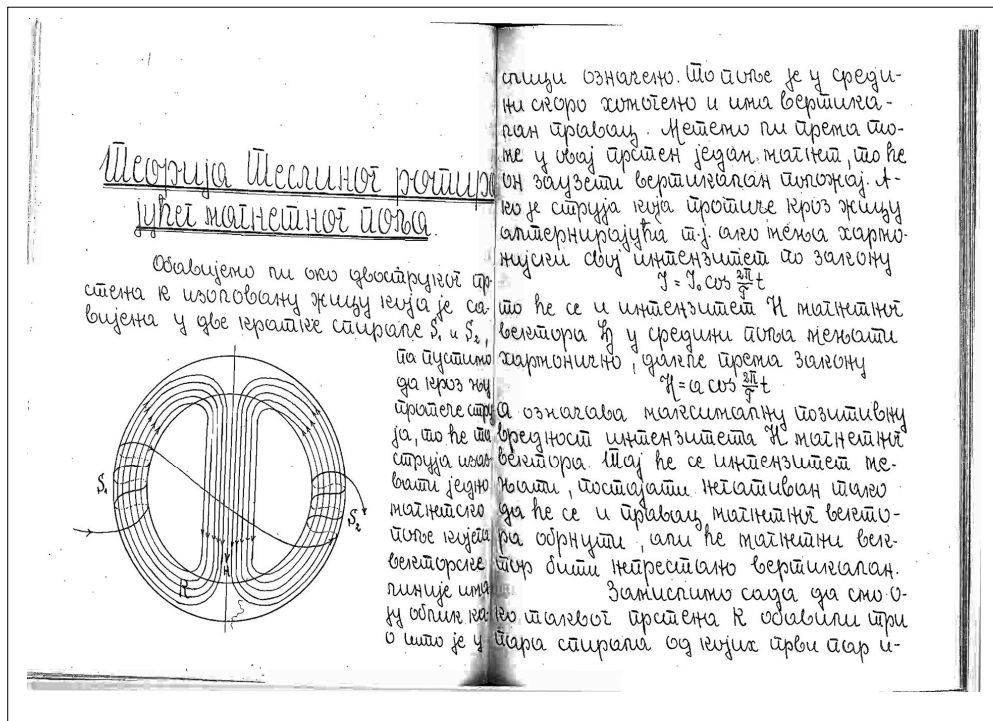 Теорија Теслиног ротира
јућег магнетног поља.
Обавијемо ли око двоструког пр
стена R изоловану жицу која је са-
вијена у две кратке спирале S₁ и S₂,
па пустимо
да кроз њу
протече стру
ја, то ће та
струја изаз
вати једно
магнетско
поље којега
векторске
линије има
ју облик ка
о што је у
S₁
S₂
R
H
слици означено. То поље је у среди-
ни скоро хомогено и има вертика-
лан правац. Метемо ли према то-
ме у овај прстен један магнет, то ће
он заузети вертикалан положај. А-
ко је струја која протиче кроз жицу
алтернирајућа т.ј. ако мења хармо-
нијски свој интензитет по закону
J = J₀ cos 2π/T t
то ће се и интензитет H магнетног
вектора ℌ у средини поља мењати
хармонично, дакле према закону
H = a cos 2π/T t
a означава максималну позитивну
вредност интензитета H магнетног
вектора. Тај ће се интензитет ме-
њати, постајати негативан тако
да ће се и правац магнетног векто-
ра обрнути, али ће магнетни век-
тор бити непрестано вертикалан.
Замислимо сада да смо о-
ко таквог прстена R обавили три
пара спирала од којих први пар и-